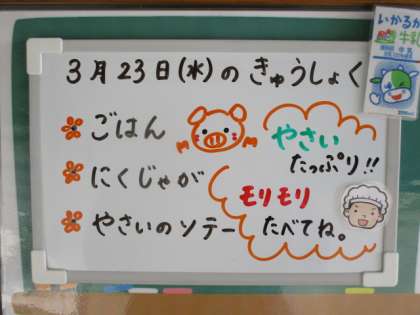 3月23日(水)のきゅうしょく
ごはん
にくじゃが
やさいのソテー
やさい
たっぷり!!
モリモリ
たべてね。
いかるが
牛乳